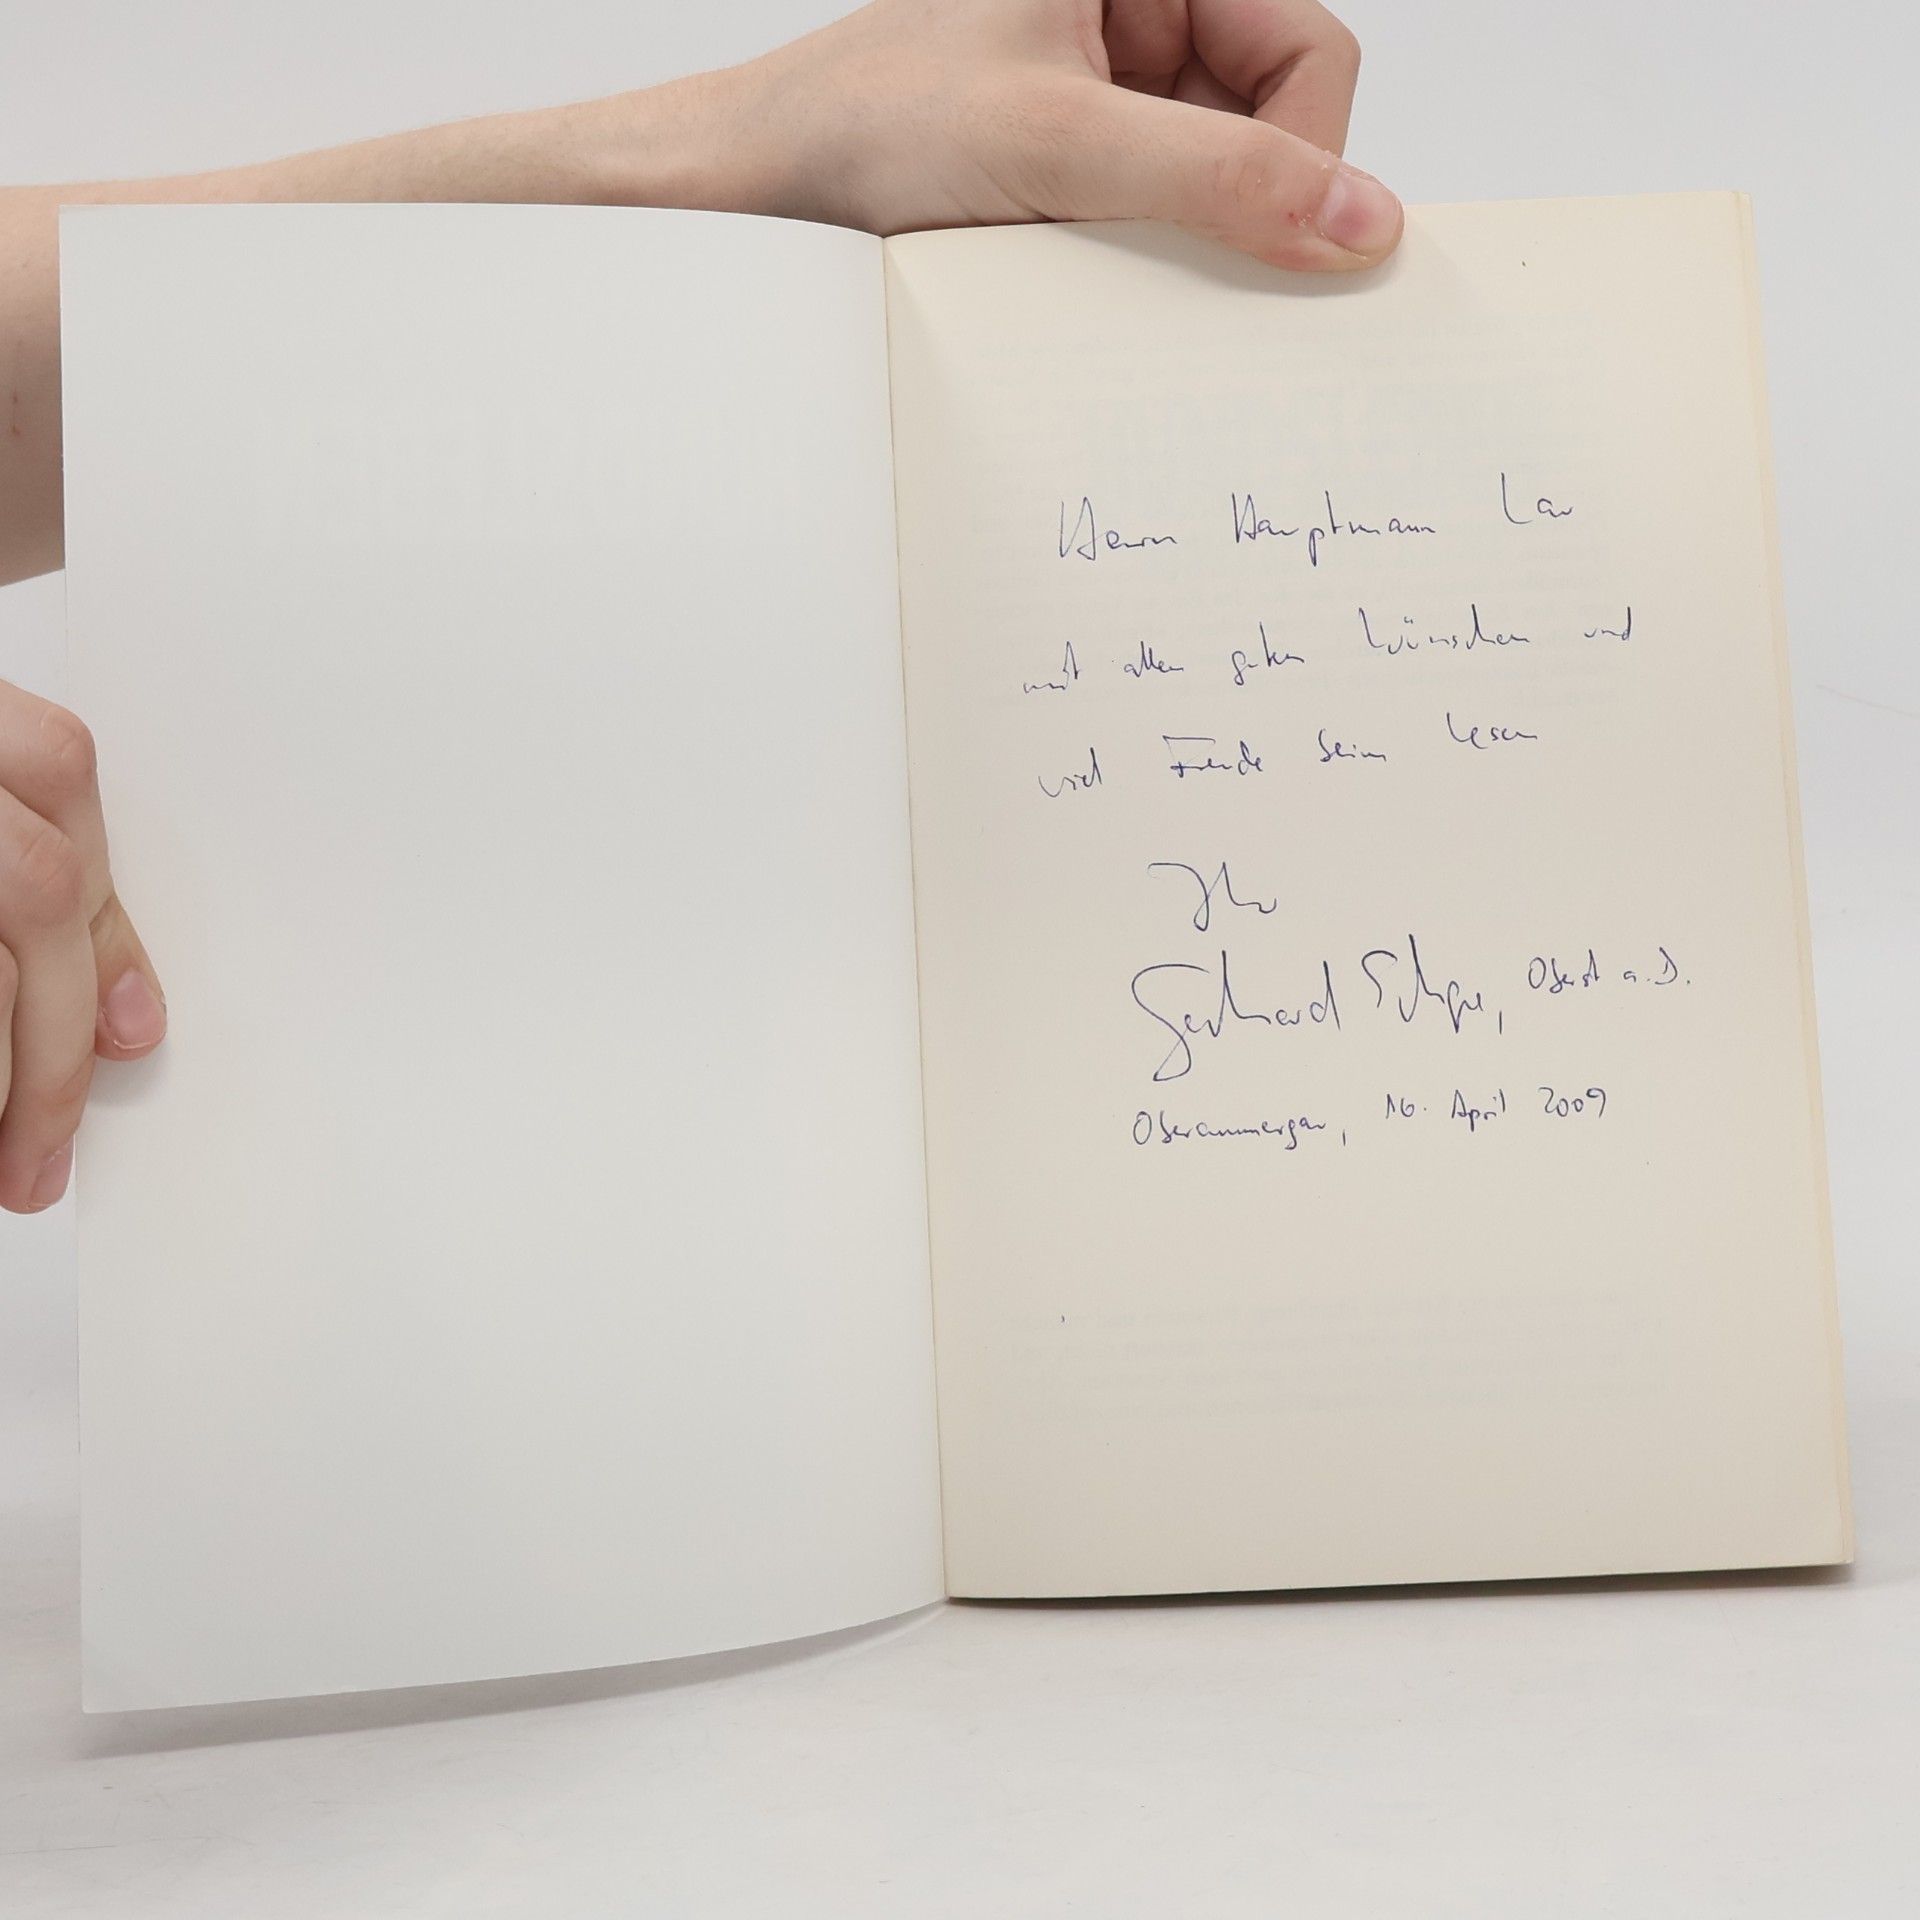 Herrn Hauptmann Lau
mit allen guten Wünschen und
viel Freude beim Lesen
Ihr
Gerhard, Oberst a.D.
Oberammergau, 16. April 2009